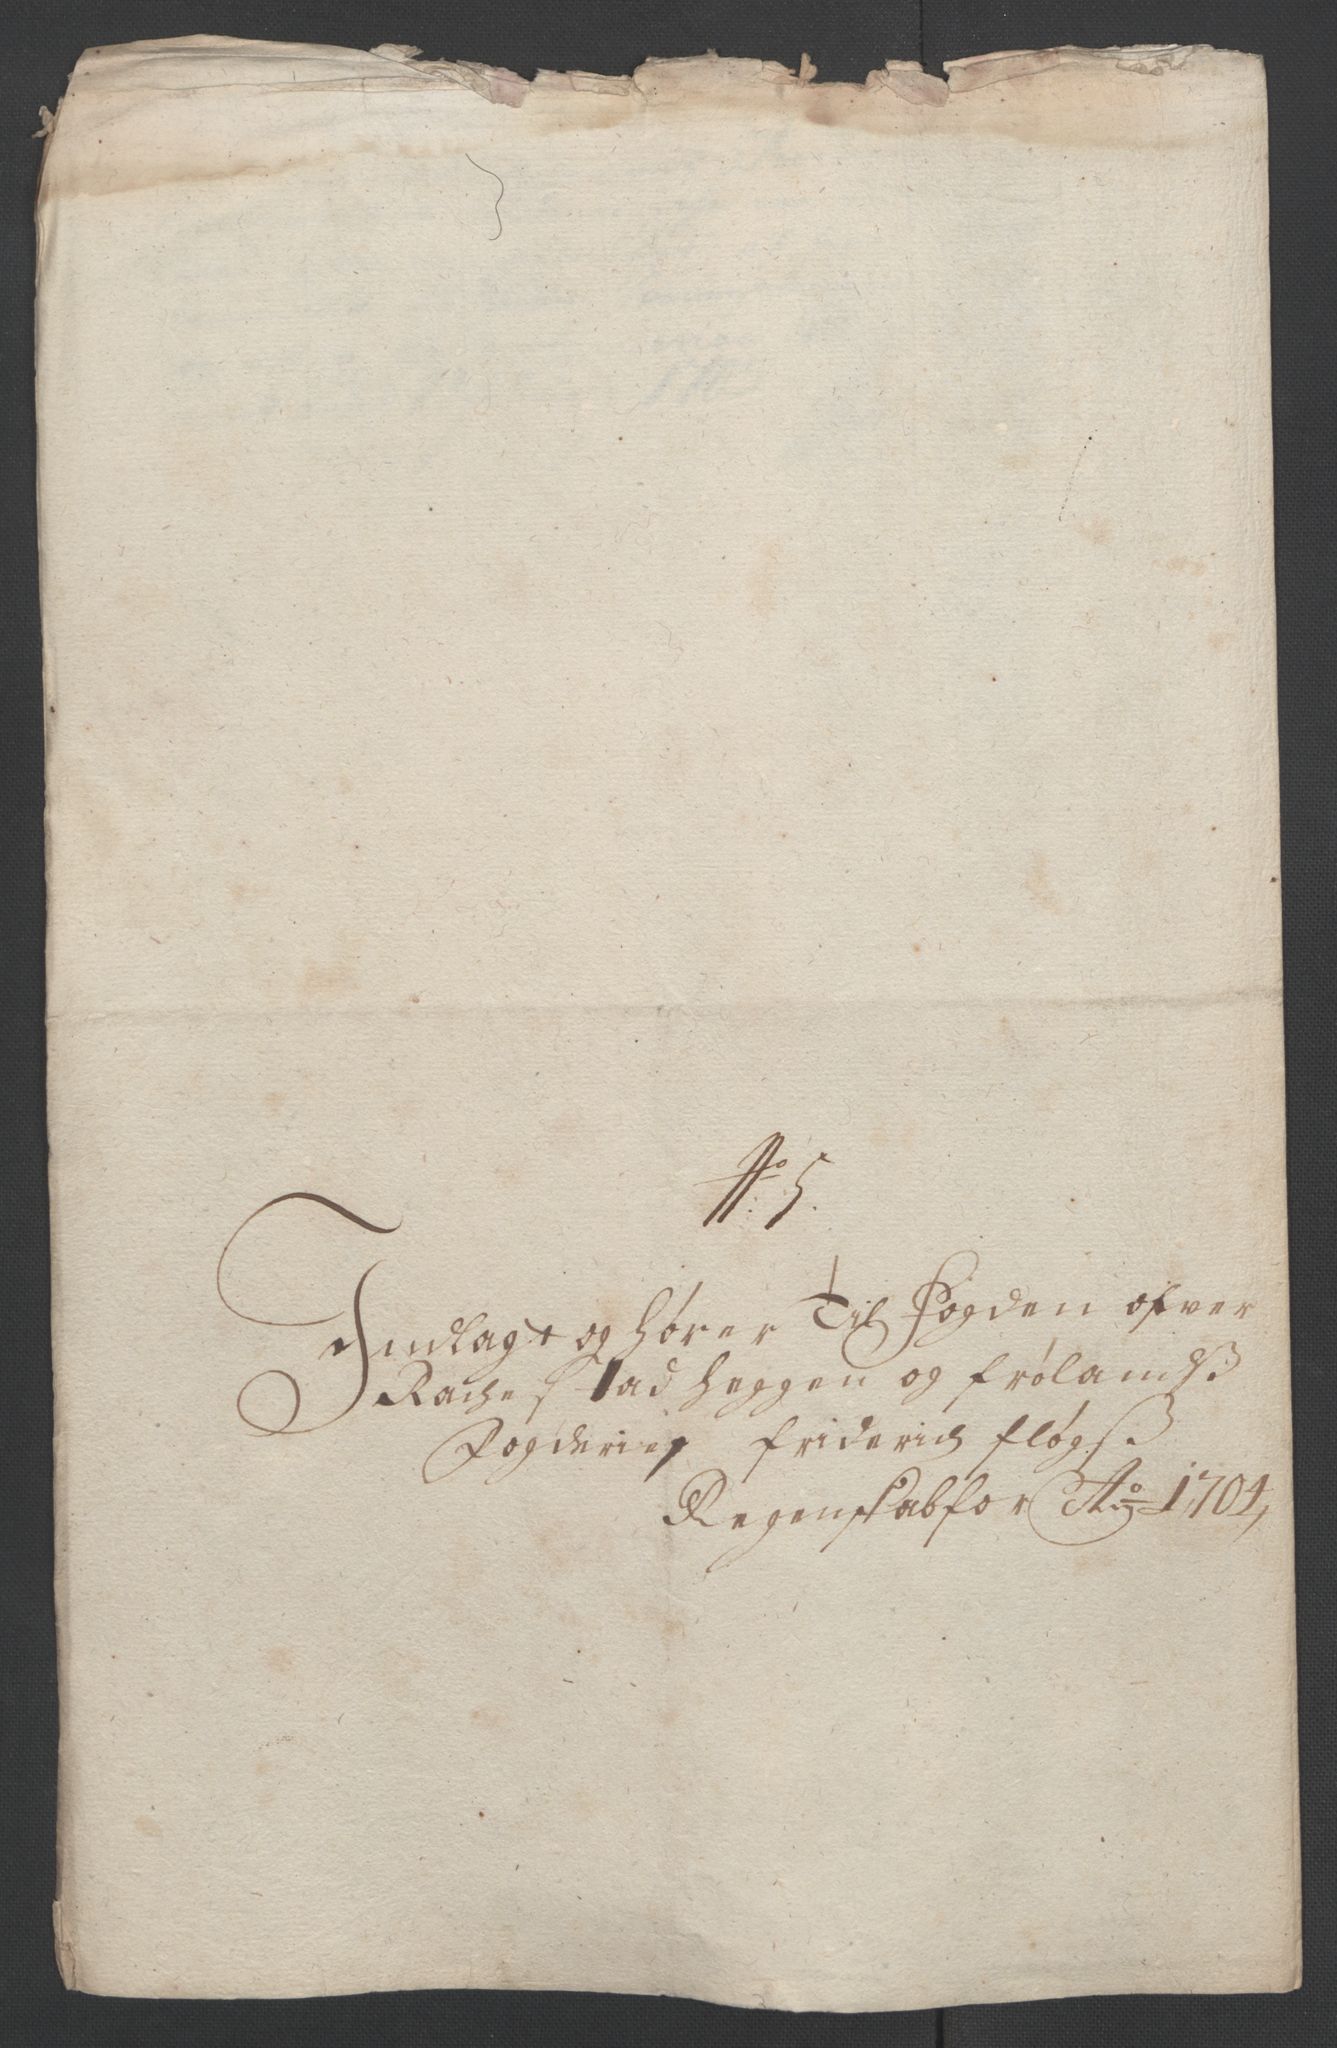 No. 5.
Indlagt og hører Til Fogden ofver
Rachestad Heggen og Frølandß:
Fogderier Friderich Fløgß:
Regenskab for Ao 1704,